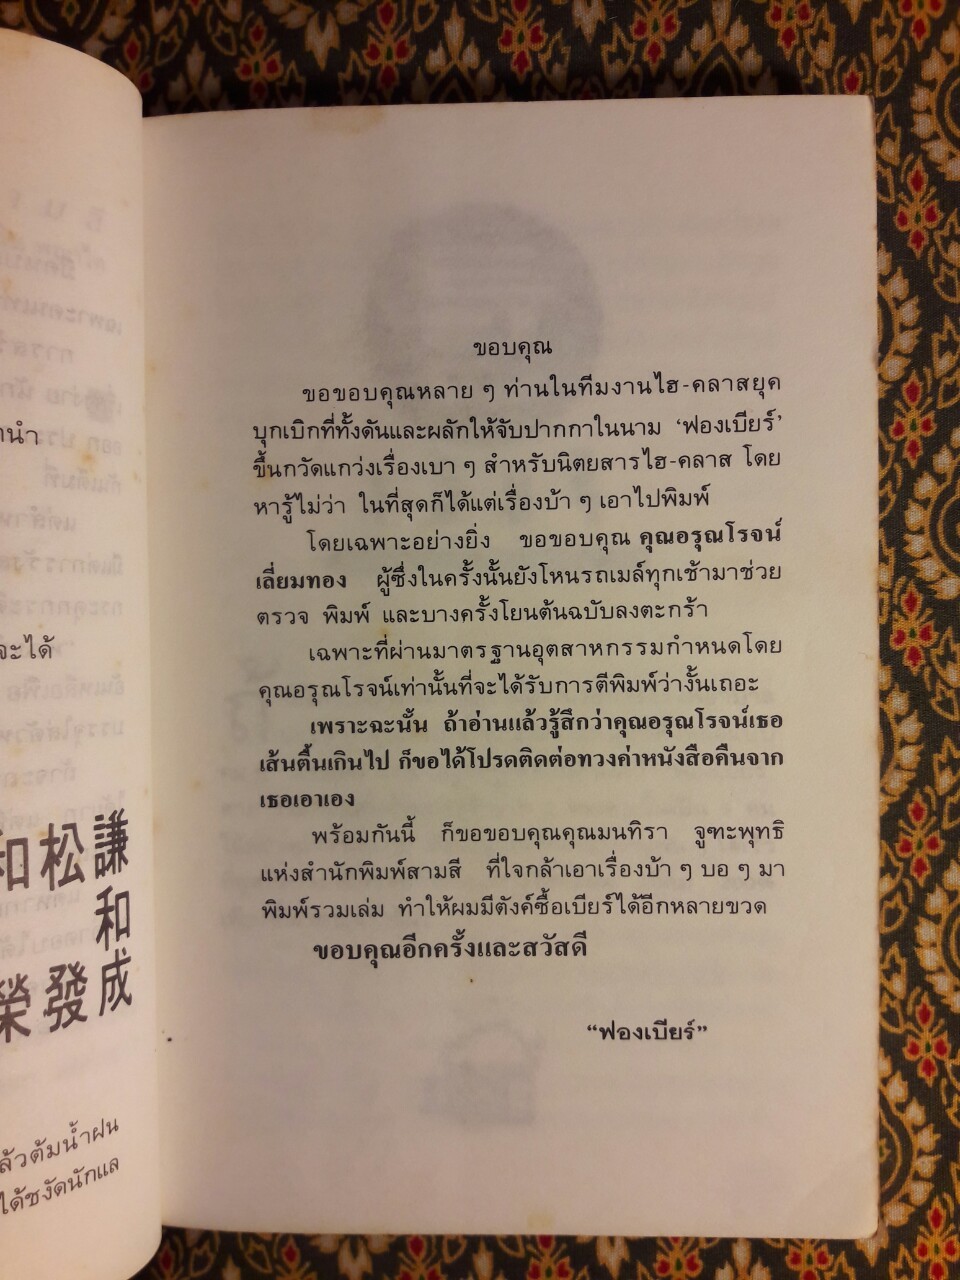 ขอบคุณ
ขอขอบคุณหลาย ๆ ท่านในทีมงานไฮ-คลาสยุค
บุกเบิกที่ทั้งดันและผลักให้จับปากกาในนาม ‘ฟองเบียร์’
ขึ้นกวัดแกว่งเรื่องเบา ๆ สำหรับนิตยสารไฮ-คลาส โดย
หารู้ไม่ว่า ในที่สุดก็ได้แต่เรื่องบ้า ๆ เอาไปพิมพ์
โดยเฉพาะอย่างยิ่ง ขอขอบคุณ คุณอรุณโรจน์
เลี่ยมทอง ผู้ซึ่งในครั้งนั้นยังโหนรถเมล์ทุกเช้ามาช่วย
ตรวจ พิมพ์ และบางครั้งโยนต้นฉบับลงตะกร้า
เฉพาะที่ผ่านมาตรฐานอุตสาหกรรมกำหนดโดย
คุณอรุณโรจน์เท่านั้นที่จะได้รับการตีพิมพ์ว่างั้นเถอะ
เพราะฉะนั้น ถ้าอ่านแล้วรู้สึกว่าคุณอรุณโรจน์เธอ
เส้นตื้นเกินไป ก็ขอได้โปรดติดต่อทวงค่าหนังสือคืนจาก
เธอเอาเอง
พร้อมกันนี้ ก็ขอขอบคุณคุณมนทิรา จูฑะพุทธิ
แห่งสำนักพิมพ์สามสี ที่ใจกล้าเอาเรื่องบ้า ๆ บอ ๆ มา
พิมพ์รวมเล่ม ทำให้ผมมีตังค์ซื้อเบียร์ได้อีกหลายขวด
ขอบคุณอีกครั้งและสวัสดี
“ฟองเบียร์”
จะได้
謙和成
松發
和榮
ล้วต้มน้ำฝน
ได้ชงัดนักแล